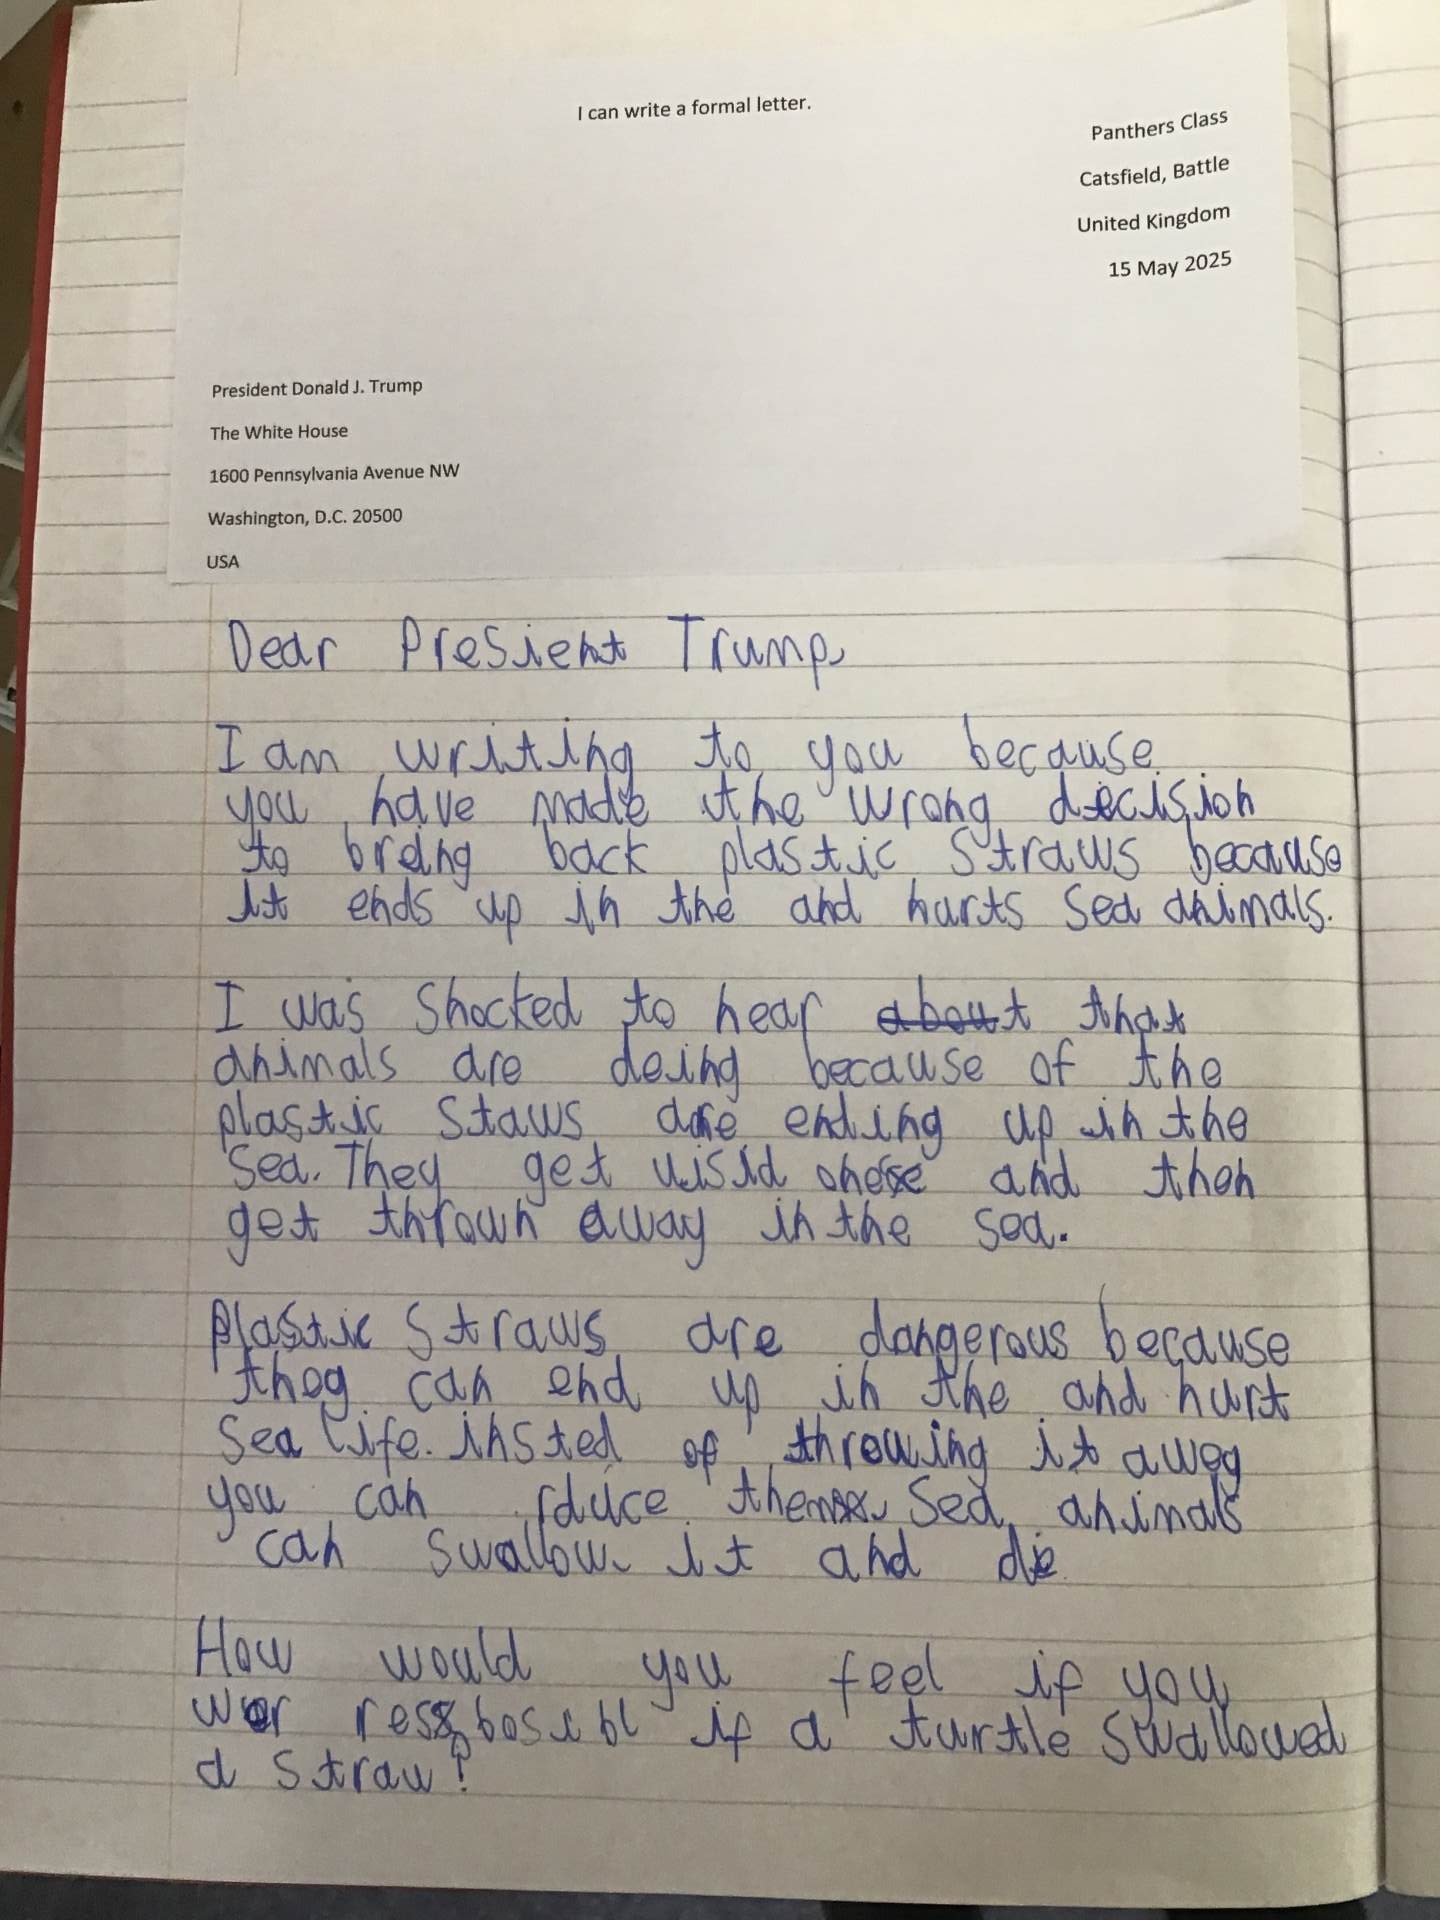 I can write a formal letter.
Panthers Class
Catsfield, Battle
United Kingdom
15 May 2025
President Donald J. Trump
The White House
1600 Pennsylvania Avenue NW
Washington, D.C. 20500
USA
Dear Presient Trump,
I am writing to you because
you have made the wrong decision
to breing back plastic straws because
it ends up in the and hurts sea animals.
I was shocked to hear about that
animals are deing because of the
plastic staws are ending up in the
sea. They get uisid onese and then
get thrown away in the sea.
Plastic straws are dangerous because
theg can end up in the and hurt
sea life. insted of throwing it aweg
you can rduice them. Sea animals
can swallow it and die.
How would you feel if you
wer resbosibl if a turtle swallowed
a straw?